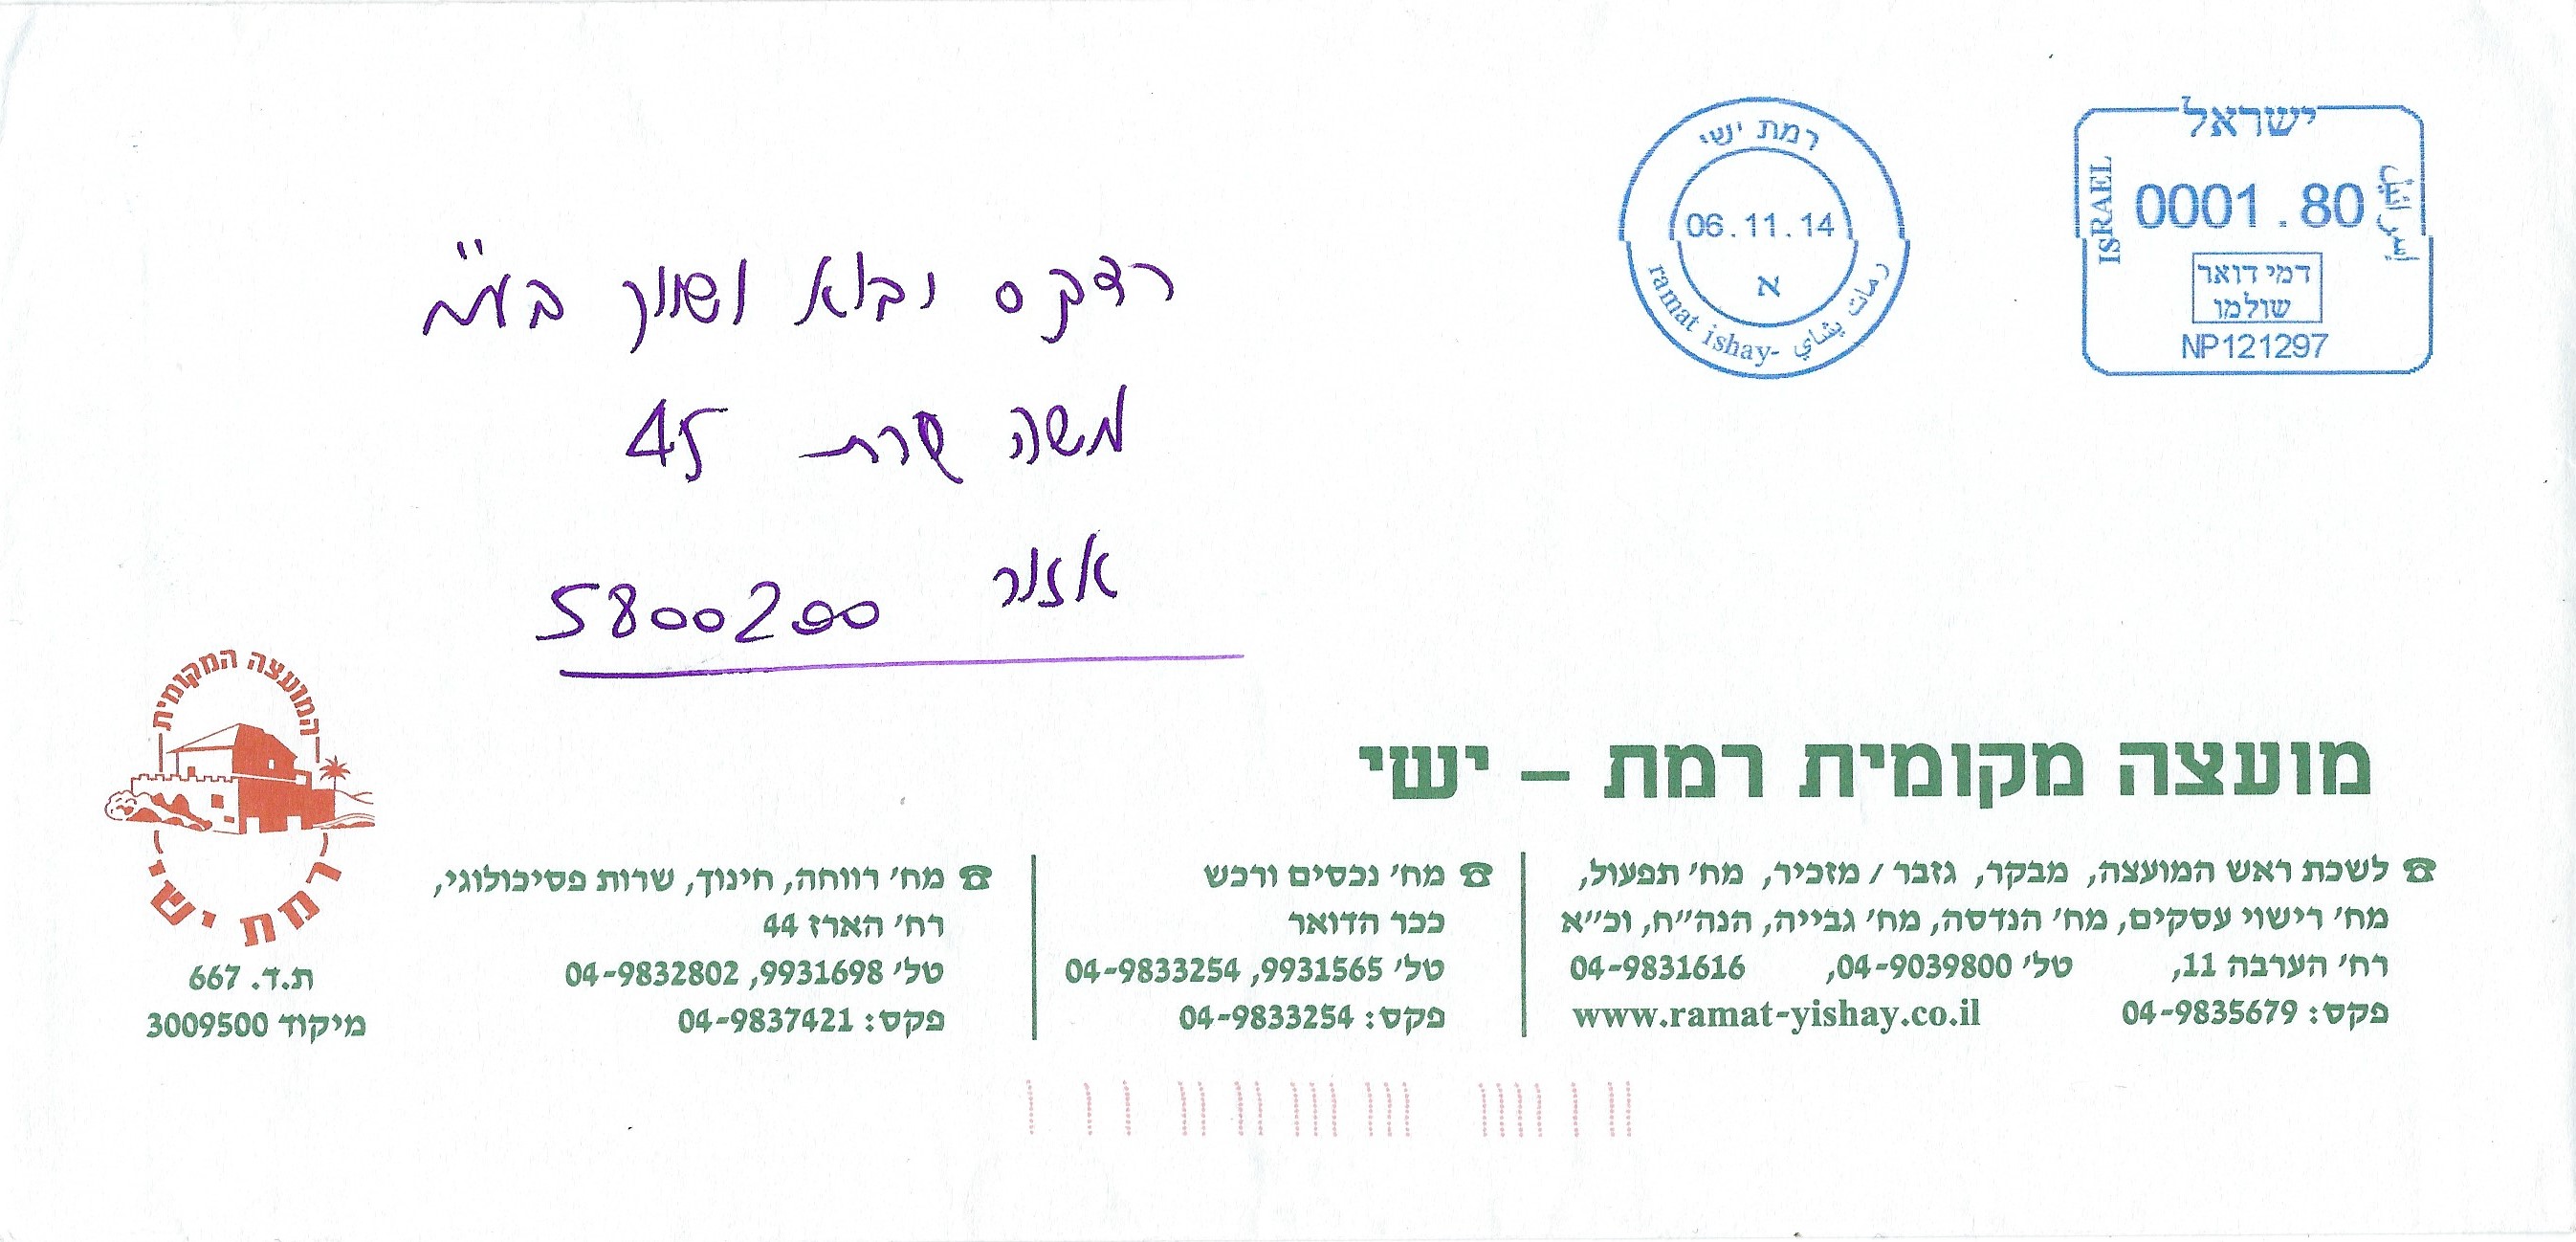 רמת ישי
06.11.14
א
ramat ishay- رمات يشاي
ישראל
ISRAEL
0001.80
اسرائيل
דמי דואר
שולמו
NP121297
רדקס יבוא ושווק בע"מ
משה שרת 45
אזור 5800200
המועצה המקומית
רמת ישי
ת.ד. 667
מיקוד 3009500
מועצה מקומית רמת – ישי
☎ לשכת ראש המועצה, מבקר, גזבר / מזכיר, מח׳ תפעול,
מח׳ רישוי עסקים, מח׳ הנדסה, מח׳ גבייה, הנה״ח, וכ״א
רח׳ הערבה 11, טל׳ 04-9039800, 04-9831616
פקס: 04-9835679 www.ramat-yishay.co.il
☎ מח׳ נכסים ורכש
ככר הדואר
טל׳ 04-9833254, 9931565
פקס: 04-9833254
☎ מח׳ רווחה, חינוך, שרות פסיכולוגי,
רח׳ הארז 44
טל׳ 04-9832802, 9931698
פקס: 04-9837421